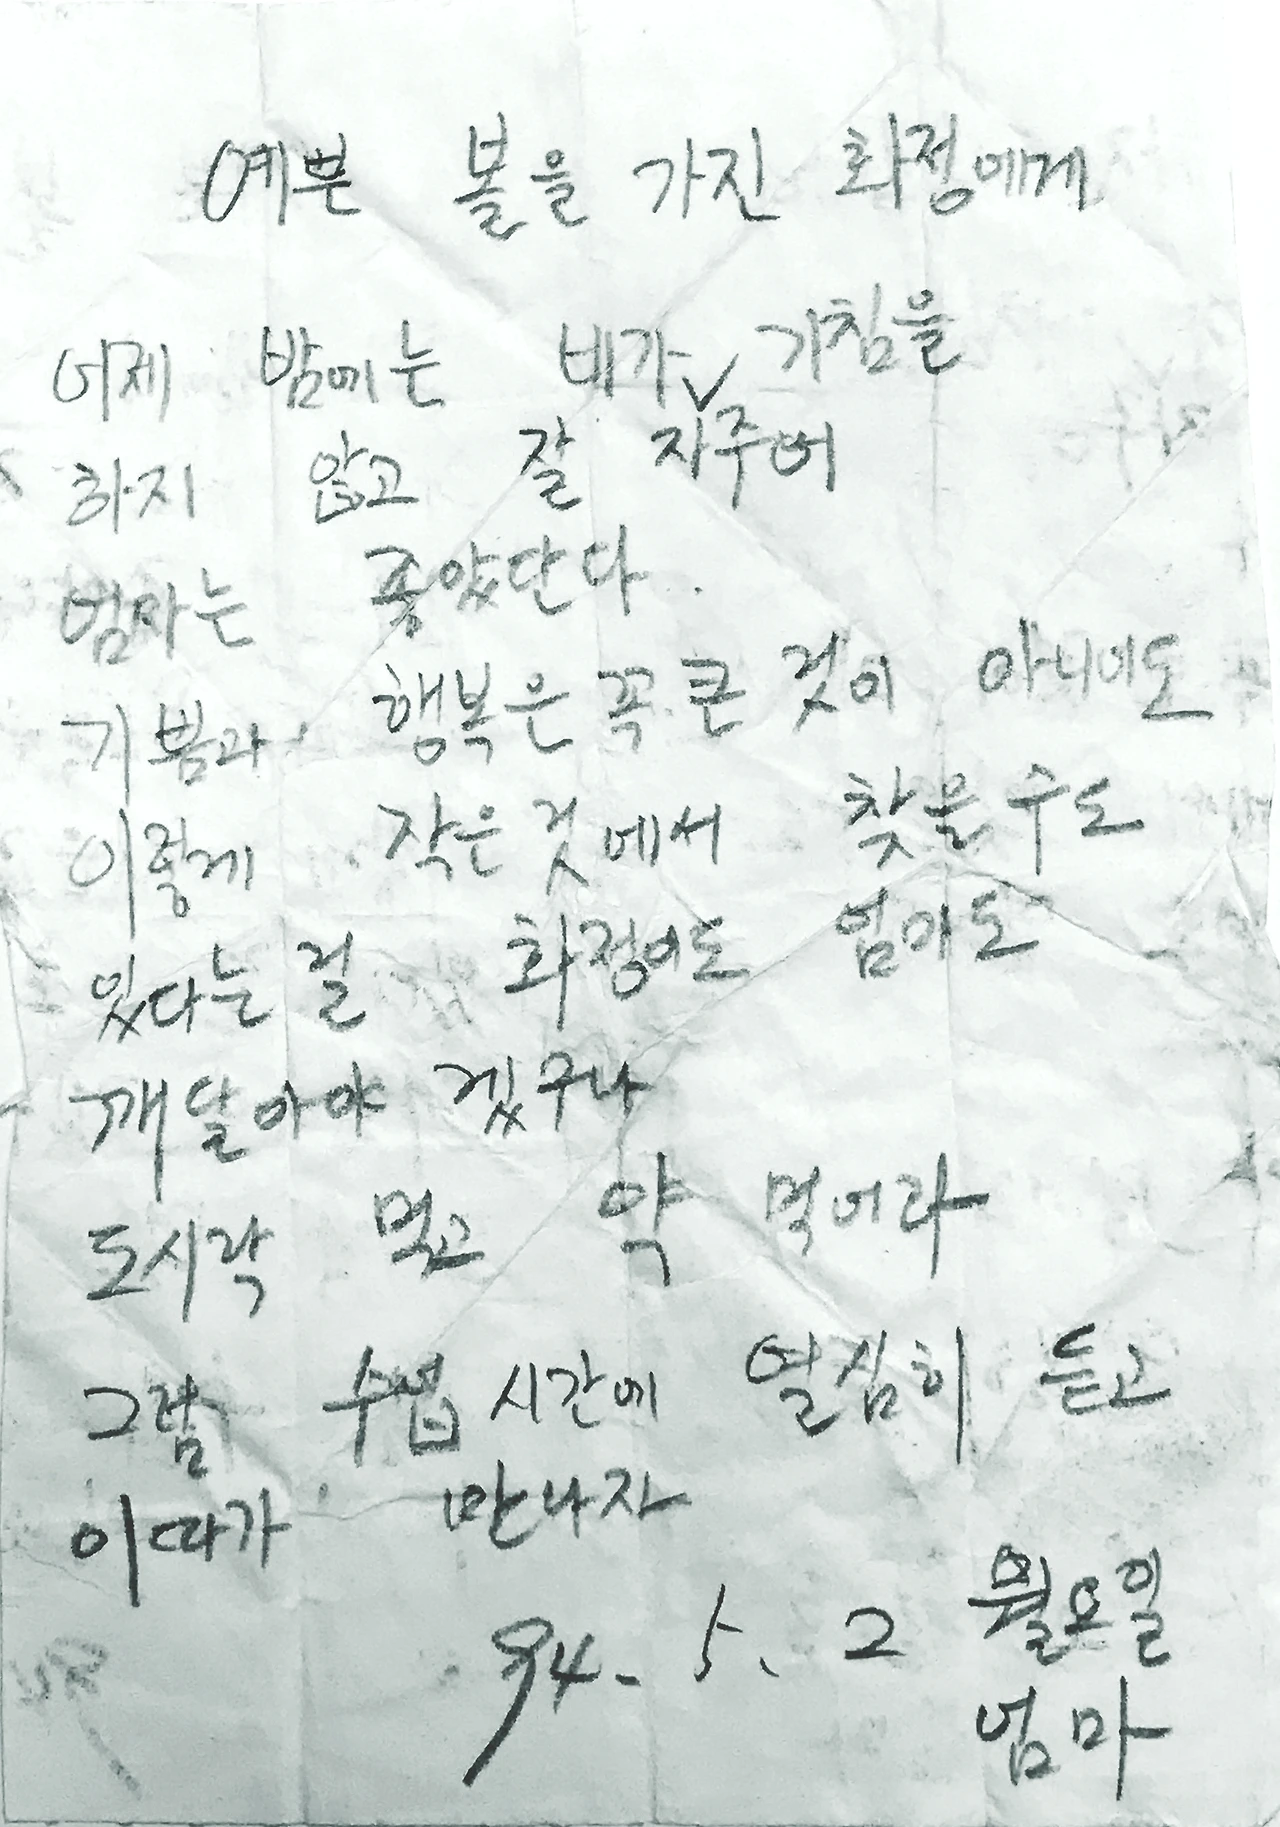 예쁜 볼을 가진 화정에게
어제 밤에는 네가 기침을
하지 않고 잘 자주어
엄마는 좋았단다.
기쁨과 행복은 꼭 큰 것이 아니어도
이렇게 작은 것에서 찾을 수도
있다는 걸 화정이도 엄마도
깨달아야 겠구나
도시락 먹고 약 먹어라
그럼 수업 시간에 열심히 듣고
이따가 만나자
94. 5. 2 월요일
엄마